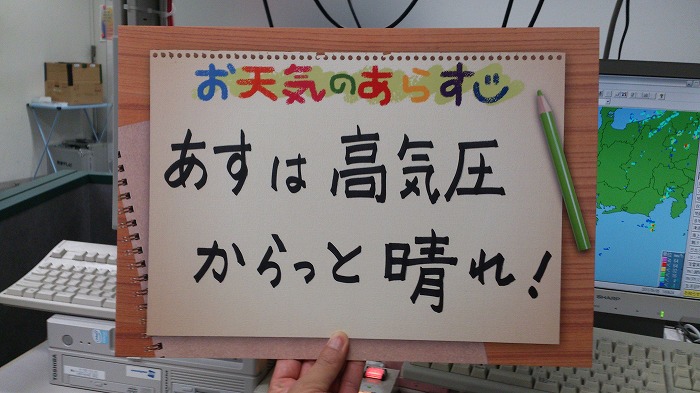 お天気のあらすじ
あすは高気圧
からっと晴れ!
SHARP
TOSHIBA